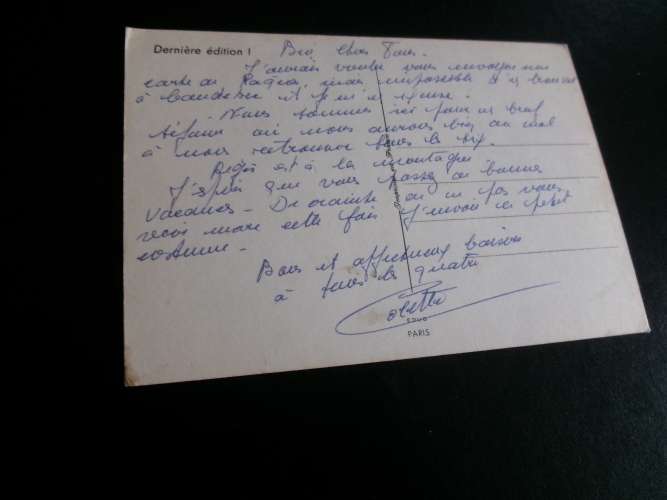 Dernière édition !
Bien chers Tous.
J'aurais voulu vous envoyer une
carte de Pâques, mais impossible d'en trouver
à
Nous sommes ici pour un bref
séjour où nous aurons bien du mal
à nous retrouver tous les six.
Régis est à la montagne
J'espère que vous passez de bonnes
vacances - De crainte de ne pas vous
revoir cette fois j'envoie ce petit
costume -
Bons et affectueux baisers
à tous les quatre
Colette
PARIS